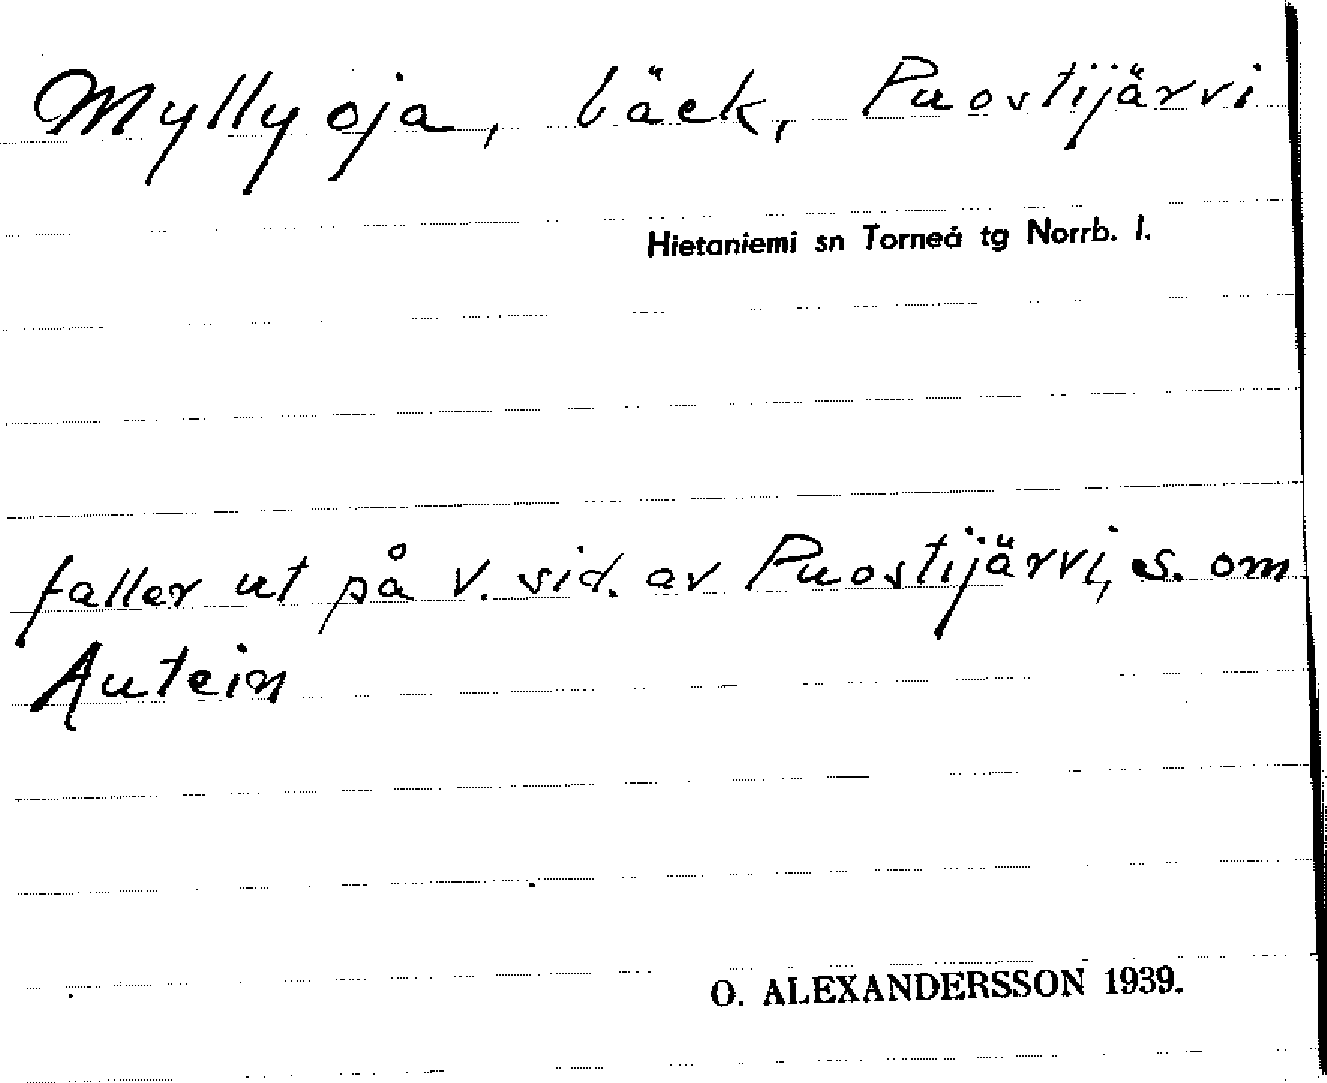 Myllyoja, bäck, Puostijärvi
Hietaniemi sn Torneå tg Norrb. l.
faller ut på v. sid. av Puostijärvi, s. om
Autein
O. ALEXANDERSSON 1939.